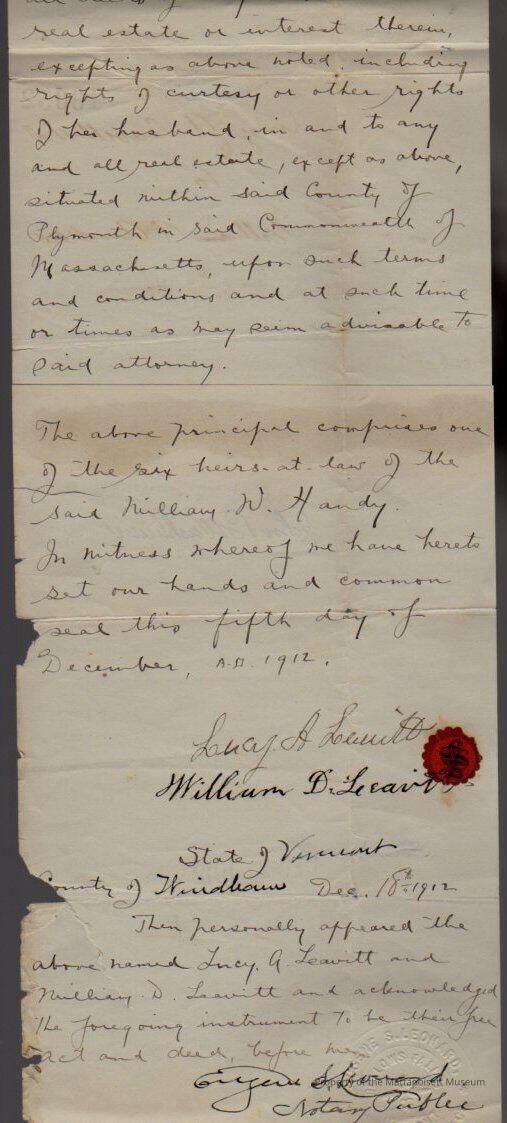 real estate or interest therein,
excepting as above noted, including
rights of curtesy or other rights
of her husband, in and to any
and all real estate, except as above,
situated within said County of
Plymouth in said Commonwealth of
Massachusetts, upon such terms
and conditions and at such time
or times as may seem advisable to
said attorney.
The above principal comprises one
of the six heirs-at-law of the
said William W. Handy.
In witness whereof we have hereto
set our hands and common
seal this fifth day of
December, A.D. 1912.
Lucy A Leavitt
William D. Leavitt
State of Vermont
County of Windham Dec. 18th 1912
Then personally appeared the
above named Lucy A. Leavitt and
William D. Leavitt and acknowledged
the foregoing instrument to be their free
act and deed, before me,
Eugene S. Leonard
Notary Public
Property of the Mattapoisett Museum